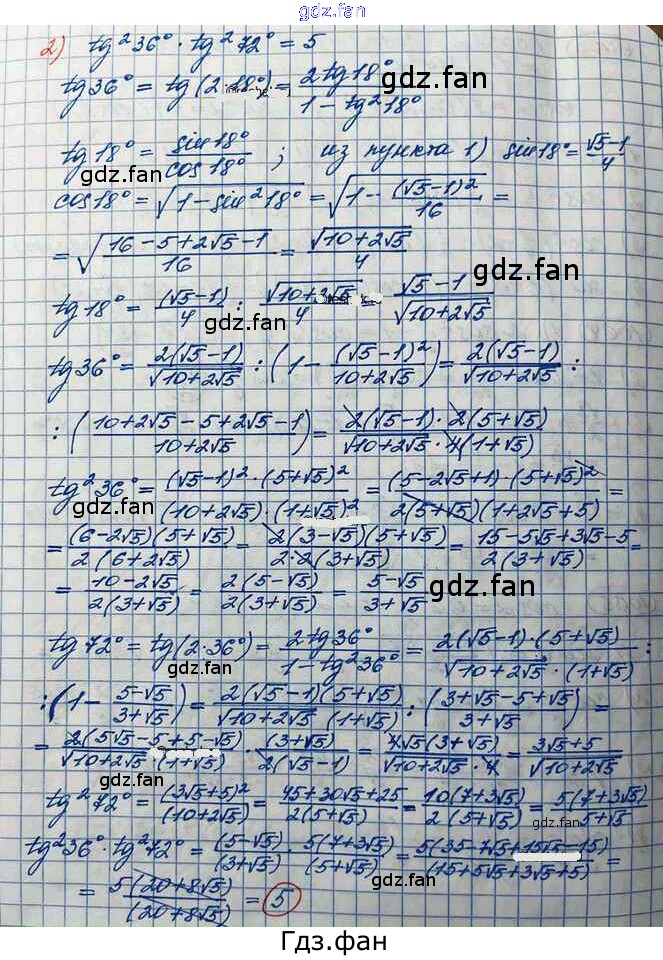 gdz.fan
gdz.fan
2) tg²36° · tg²72° = 5
tg36° = tg(2·18°) = 2tg18° / (1 − tg²18°)
gdz.fan
gdz.fan
tg18° = sin18° / cos18° ; из пункта 1) sin18° = (√5−1)/4
gdz.fan
cos18° = √(1−sin²18°) = √(1 − (√5−1)²/16) =
= √((16−5+2√5−1)/16) = √(10+2√5)/4
gdz.fan
tg18° = (√5−1)/4 : √(10+2√5)/4 = (√5−1)/√(10+2√5)
gdz.fan
tg36° = 2(√5−1)/√(10+2√5) : (1 − (√5−1)²/(10+2√5)) = 2(√5−1)/√(10+2√5) :
: ((10+2√5−5+2√5−1)/(10+2√5)) = 2(√5−1)·2(5+√5) / (√(10+2√5)·4(1+√5))
tg²36° = (√5−1)²·(5+√5)² / ((10+2√5)·(1+√5)²) = (5−2√5+1)·(5+√5)² / (2(5+√5)(1+2√5+5)) =
gdz.fan
= (6−2√5)(5+√5) / (2(6+2√5)) = 2(3−√5)(5+√5) / (2·2(3+√5)) = (15−5√5+3√5−5) / (2(3+√5)) =
= (10−2√5) / (2(3+√5)) = 2(5−√5) / (2(3+√5)) = (5−√5)/(3+√5)
gdz.fan
tg72° = tg(2·36°) = 2tg36° / (1−tg²36°) = 2(√5−1)·(5+√5) / (√(10+2√5)·(1+√5)) :
gdz.fan
: (1 − (5−√5)/(3+√5)) = 2(√5−1)(5+√5) / (√(10+2√5)(1+√5)) : ((3+√5−5+√5)/(3+√5)) =
= 2(5√5−5+5−√5) / (√(10+2√5)·(1+√5)) · (3+√5)/(2(√5−1)) = 4√5(3+√5) / (√(10+2√5)·4) = (3√5+5)/√(10+2√5)
tg²72° = (3√5+5)²/(10+2√5) = (45+30√5+25)/(2(5+√5)) = 10(7+3√5)/(2(5+√5)) = 5(7+3√5)/(5+√5)
gdz.fan
gdz.fan
tg²36° · tg²72° = (5−√5)/(3+√5) · 5(7+3√5)/(5+√5) = 5(35−7√5+15√5−15)/(15+5√5+3√5+5) =
= 5(20+8√5)/(20+8√5) = 5
gdz.fan
gdz.fan
Гдз.фан